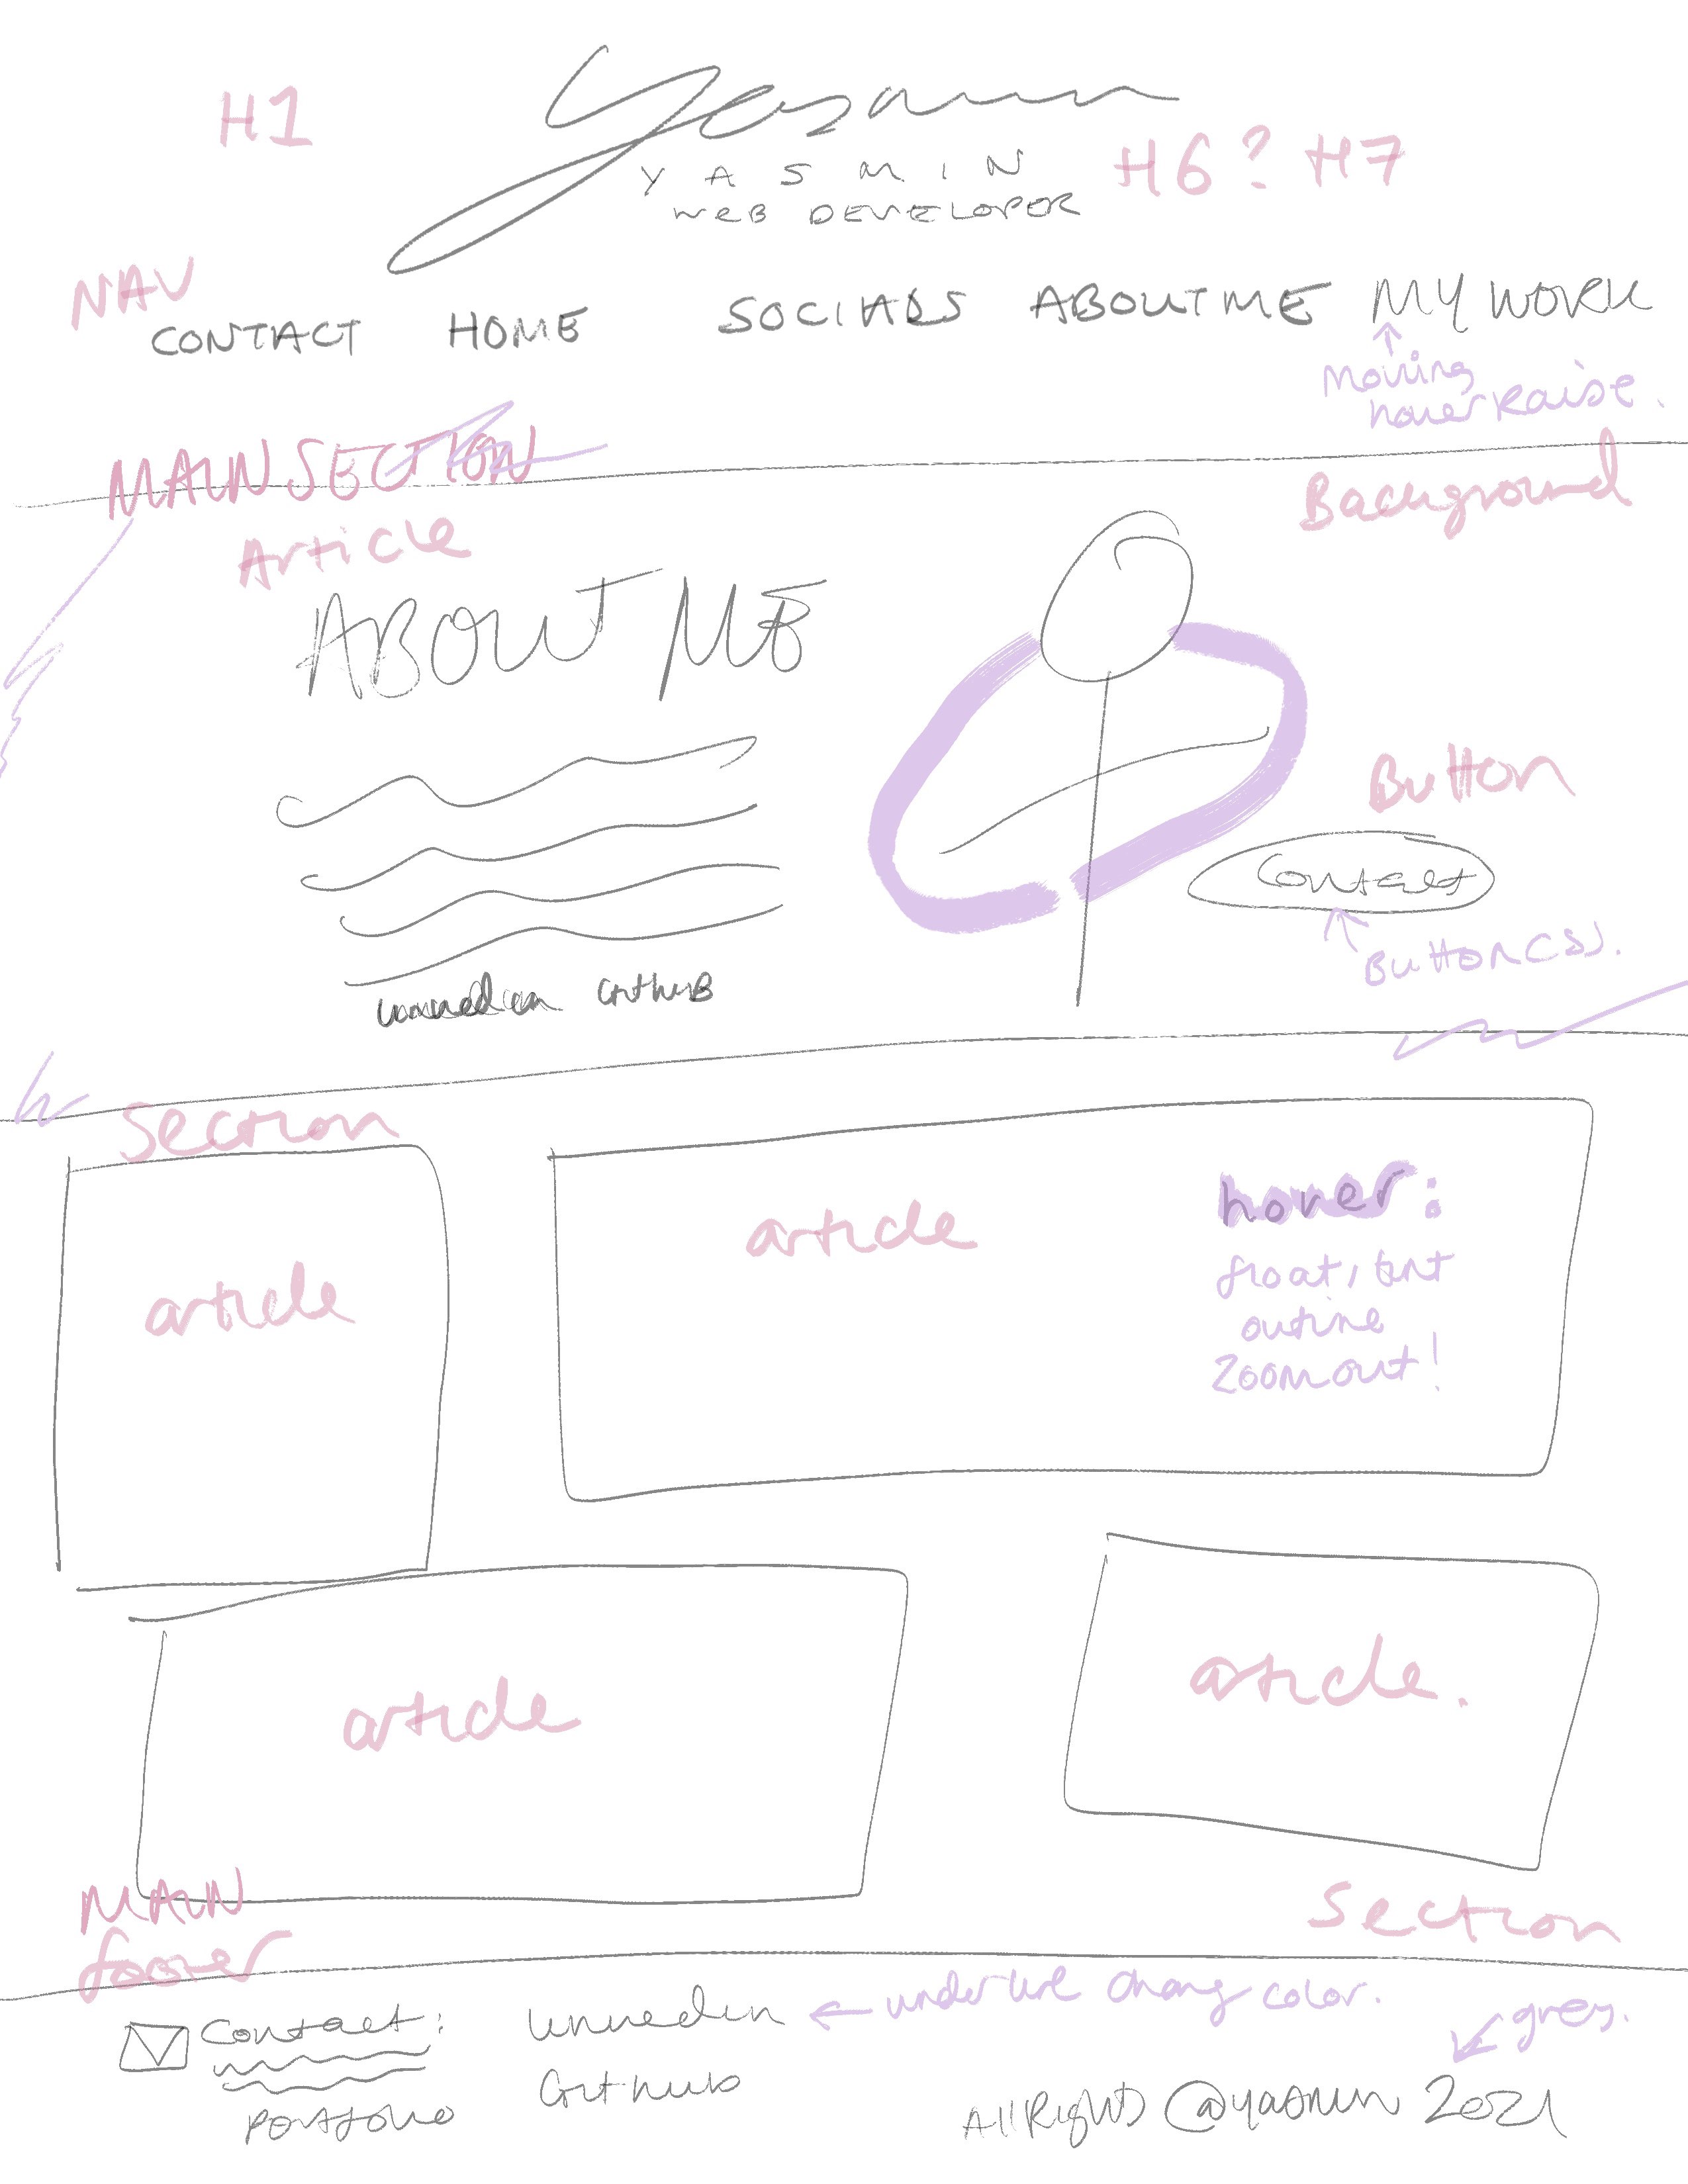 H1
Yasmin
YASMIN
H6? H7
WEB DEVELOPER
NAV
CONTACT HOME SOCIALS ABOUT ME MY WORK
Moving
hover Raise.
MAIN SECTION
Background
Article
ABOUT ME
Button
Contact
Button CSS.
Linnedin Github
Section
article
article
hover:
float, tint
outine
zoom out!
article
article.
MAIN
Section
footer
Contact:
Linnedin
underline chang color.
grey.
Github
Portfolio
All Rights @yasmin 2021